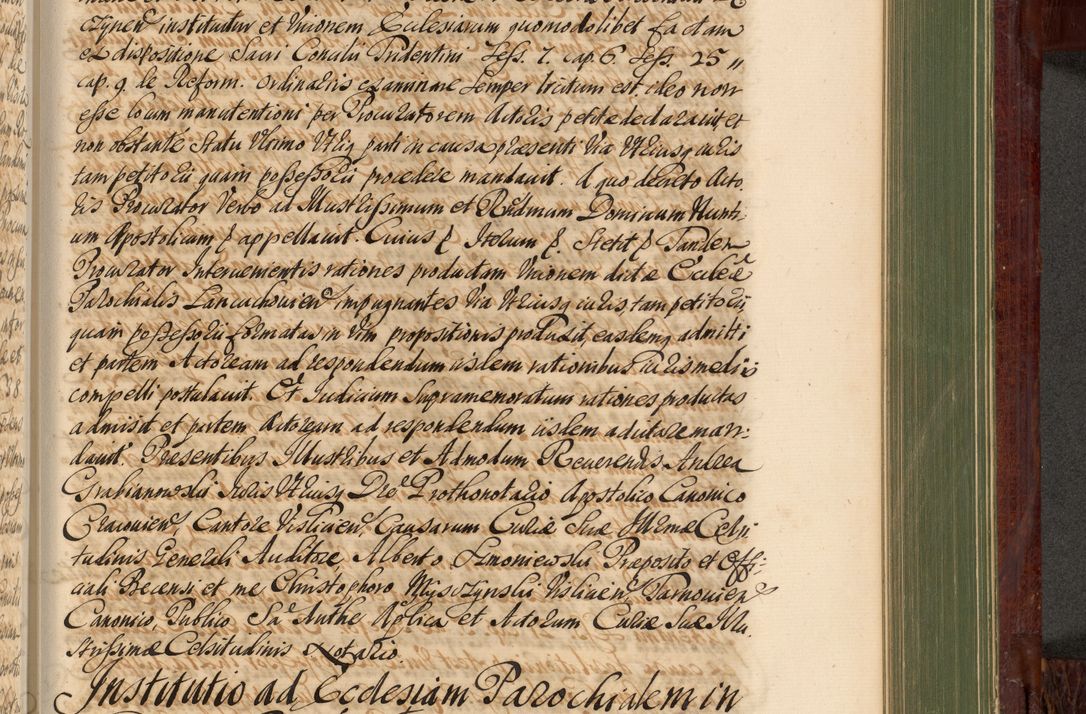 czynen̄ instituitur et Vnionem Ecclesiarum quomodolibet factam
ex dispositione Sacri Concilii Tridentini Sess. 7. cap. 6. Sess. 25 „
cap. 9. de Reform. Ordinariis examinare semper licitum est, ideo non
esse locum manutentioni per Procuratorem Actoris petitæ declarauit et
non obstante Statu Vltimo Vtriq parti in causa præsenti Via Vtriusq iuris
tam petitorii quam possessorii procedere mandauit. A quo decreto Acto-
ris Procurator Verbo ad Illustrissimum et Rn̄dmum Dominum Nunti-
um Apostolicum & appellauit. Cuius & Iterum &. Stetit & Tandem
Procurator Interuenientis rationes productam Vnionem dictæ Eccliæ
Parochialis Lancuchouien̄ impugnantes Via Vtriusq iuris, tam petitorii,
quam possessorii formatas in Vim propositionis produxit, easdemq admitti
et partem Actoream ad respondendum iisdem rationibus iuris mediis
compelli postulauit. Et Iudicium Supramemoratum rationes productas
admisit et partem Actoream ad respondendum iisdem adictare man-
dauit. Præsentibus Illustribus et Admodum Reuerendis Andrea
Grabianowski Iuris Vtriusq Dre Prothonotario Apostolico Canonico
Cracouien̄, Cantore Vislicien̄, Causarum Curiæ Suæ Illrmæ Celsi-
tudinis Generali Auditore, Alberto Szmoniewski Præposito et Offi-
ciali Biecensi et me Christophoro Mysczynski Vislicien̄ Tarnouien̄
Canonico, Publico Sa Authe Aplica et Actorum Curiæ Suæ Illu-
strissimæ Celsitudinis Notario.
Institutio ad Ecclesiam Parochialem in